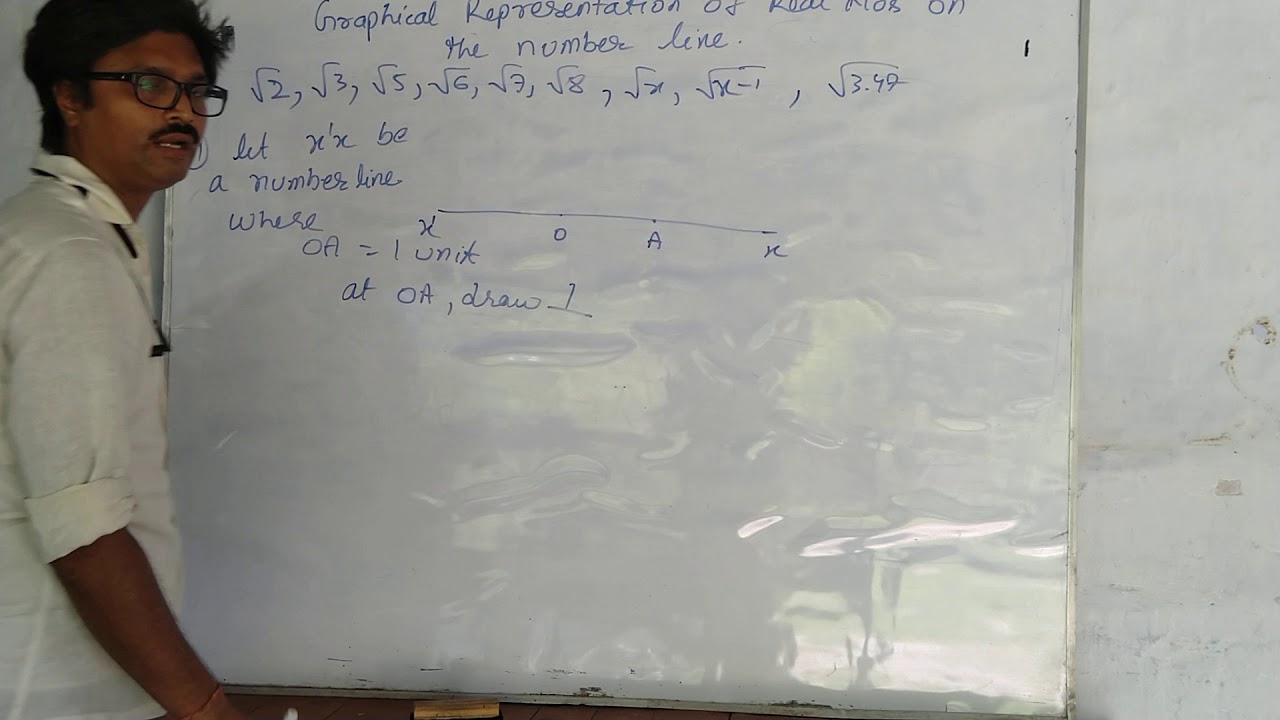 Graphical Representation of Real Nos on
the number line.
√2, √3, √5, √6, √7, √8, √x, √x-1, √3.47
1) let x'x be
a number line
where
x O A x
OA = 1 unit
at OA, draw ⊥